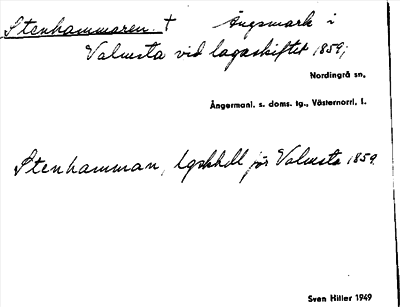 Stenhammaren. † Ängsmark i
Valmsta vid lagaskiftet 1859;
Nordingrå sn,
Ångermanl. s. doms. tg., Västernorrl. l.
Stenhamman, lgskhdl för Valmsta 1859.
Sven Hiller 1949